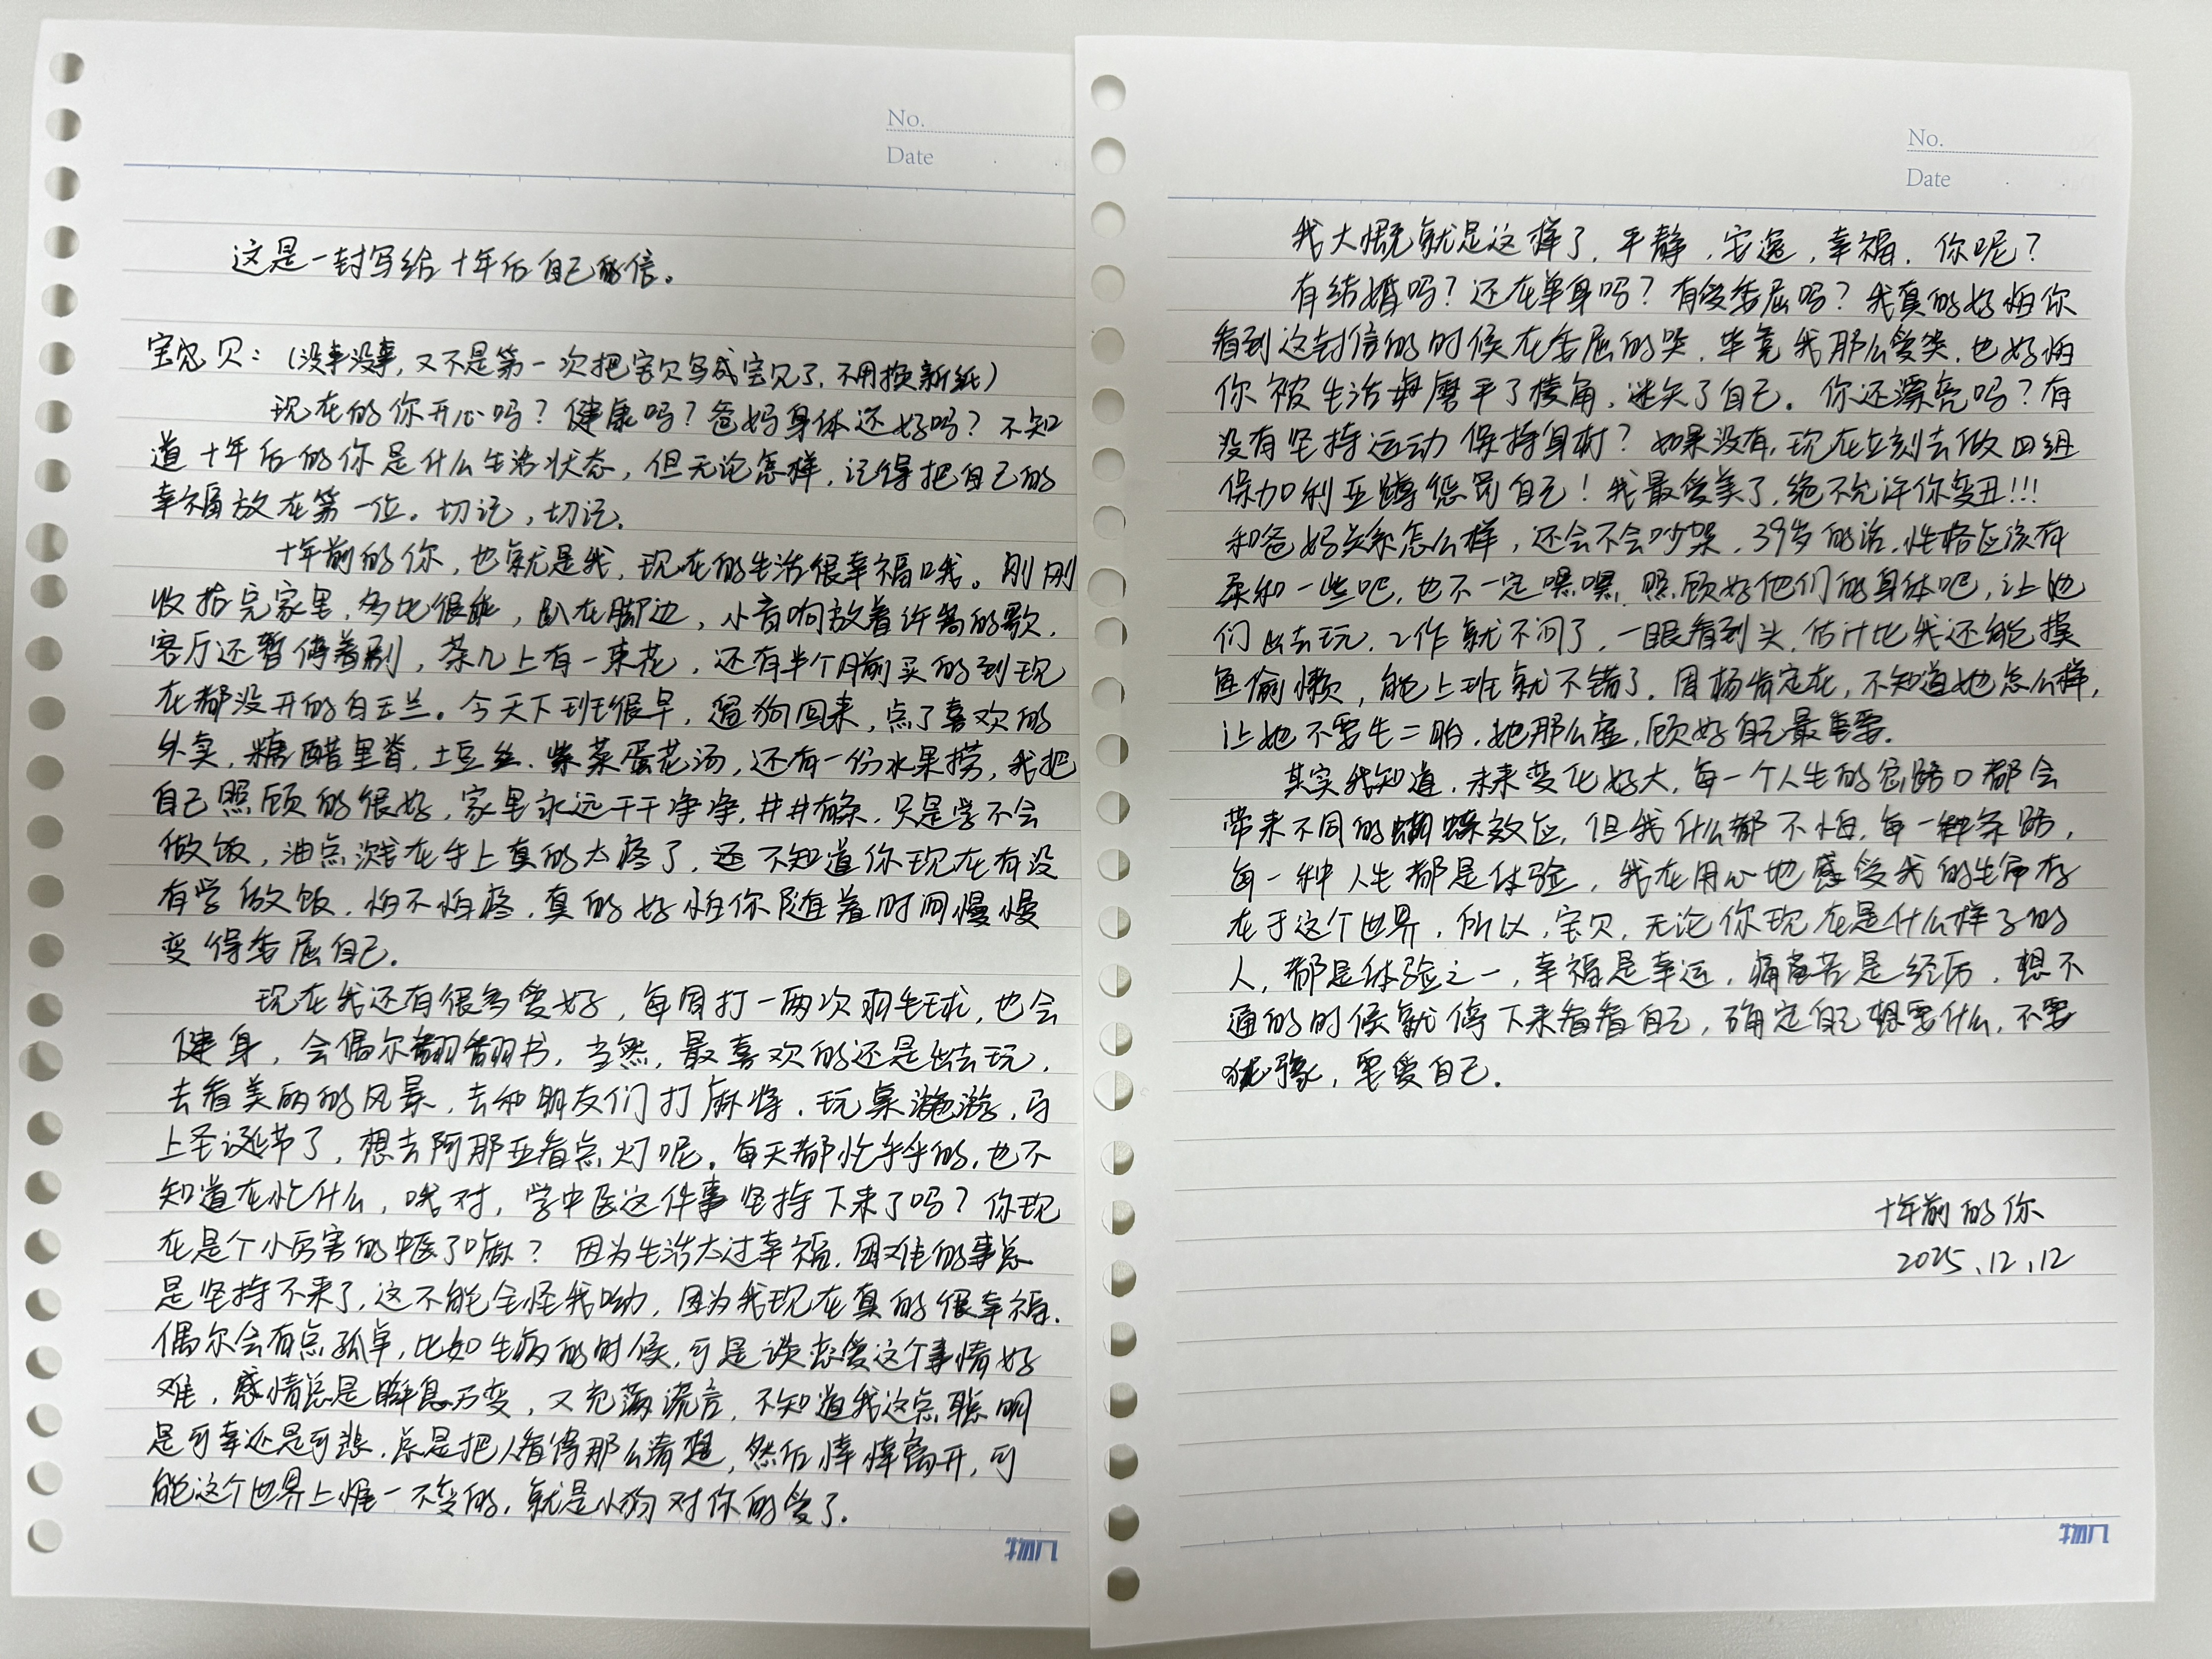 No.
Date
这是一封写给十年后自己的信。
宝见贝：（没事没事，又不是第一次把宝贝写成宝见了，不用换新纸）
现在的你开心吗？健康吗？爸妈身体还好吗？不知
道十年后的你是什么生活状态，但无论怎样，记得把自己的
幸福放在第一位。切记，切记。
十年前的你，也就是我，现在的生活很幸福哦。刚刚
收拾完家里，多比很乖，趴在脚边，小音响放着许嵩的歌，
客厅还暂停着剧，茶几上有一束花，还有半个月前买的到现
在都没开的白玉兰。今天下班很早，遛狗回来，点了喜欢的
外卖，糖醋里脊，土豆丝，紫菜蛋花汤，还有一份水果捞，我把
自己照顾的很好，家里永远干干净净，井井有条，只是学不会
做饭，油点溅在手上真的太疼了，还不知道你现在有没
有学做饭，怕不怕疼，真的好怕你随着时间慢慢
变得委屈自己。
现在我还有很多爱好，每周打一两次羽毛球，也会
健身，会偶尔翻翻书，当然，最喜欢的还是出去玩，
去看美丽的风景，去和朋友们打麻将，玩桌游，马
上圣诞节了，想去阿那亚看点灯呢。每天都忙乎乎的，也不
知道在忙什么，哦对，学中医这件事坚持下来了吗？你现
在是个小厉害的中医了嘛？因为生活太过幸福，困难的事总
是坚持不来了，这不能全怪我呦，因为我现在真的很幸福。
偶尔会有点孤单，比如生病的时候，可是谈恋爱这个事情好
难，感情总是瞬息万变，又充满谎言，不知道我这点聪明
是可幸还是可悲，总是把人看得那么清楚，然后悻悻离开，可
能这个世界上唯一不变的，就是小狗对你的爱了。
No.
Date
我大概就是这样了，平静，安逸，幸福，你呢？
有结婚吗？还在单身吗？有受委屈吗？我真的好怕你
看到这封信的时候在委屈的哭，毕竟我那么爱哭，也好怕
你被生活磨平了棱角，迷失了自己。你还漂亮吗？有
没有坚持运动保持身材？如果没有，现在立刻去做四组
保加利亚蹲惩罚自己！我最爱美了，绝不允许你变丑!!!
和爸妈关系怎么样，还会不会吵架，39岁的话，性格应该有
柔和一些吧，也不一定嘿嘿，照顾好他们的身体吧，让他
们出去玩，工作就不问了，一眼看到头，估计比我还能摸
鱼偷懒，能上班就不错了，周杨肯定在，不知道她怎么样，
让她不要生二胎，她那么虚，顾好自己最重要。
其实我知道，未来变化好大，每一个人生的岔路口都会
带来不同的蝴蝶效应，但我什么都不怕，每一种条路，
每一种人生都是体验，我在用心地感受我的生命存
在于这个世界，所以，宝贝，无论你现在是什么样子的
人，都是体验之一，幸福是幸运，痛苦是经历，想不
通的时候就停下来看看自己，确定自己想要什么，不要
犹豫，要爱自己。
十年前的你
2025.12.12